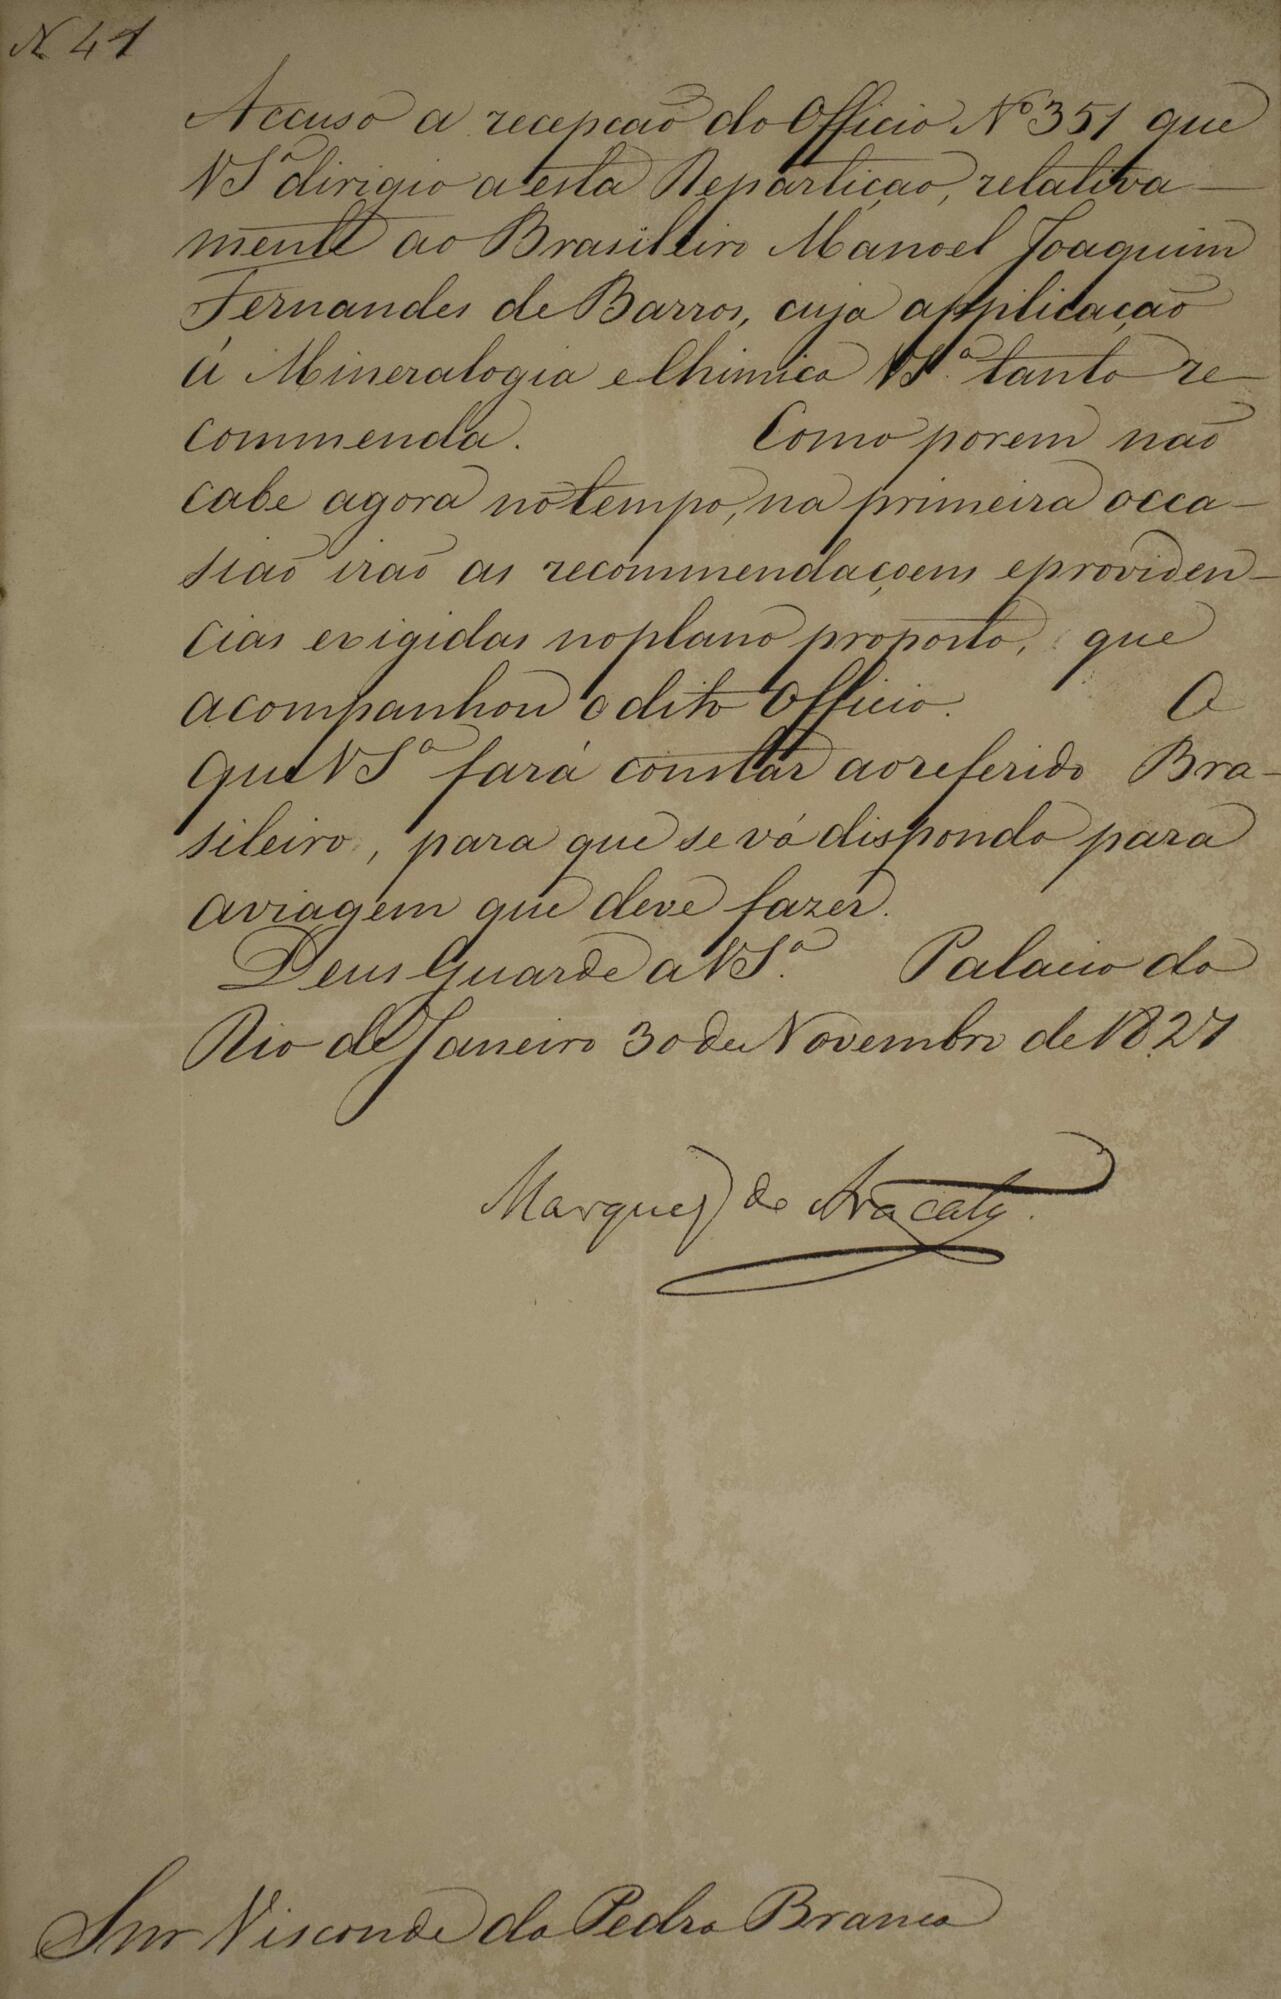 N 41
Accuso a recepcaõ do Officio Nº 351 que
VSª dirigio a esta Repartiçao, relativa-
mente ao Brasileiro Manoel Joaquim
Fernandes de Barros, cuja applicaçaõ
á Mineralogia e Chimica VSª tanto re-
commenda. Como porem naõ
cabe agora no tempo, na primeira occa-
siaõ iraõ as recommendaçoens e providen-
cias exigidas no plano proposto, que
acompanhou o dito Officio. O
que VSª fará constar ao referido Bra-
sileiro, para que se vá dispondo para
a viagem que deve fazer.
Deus Guarde a VSª. Palacio do
Rio de Janeiro 30 de Novembro de 1827
Marquez de Aracaty.
Snr Visconde da Pedra Branca